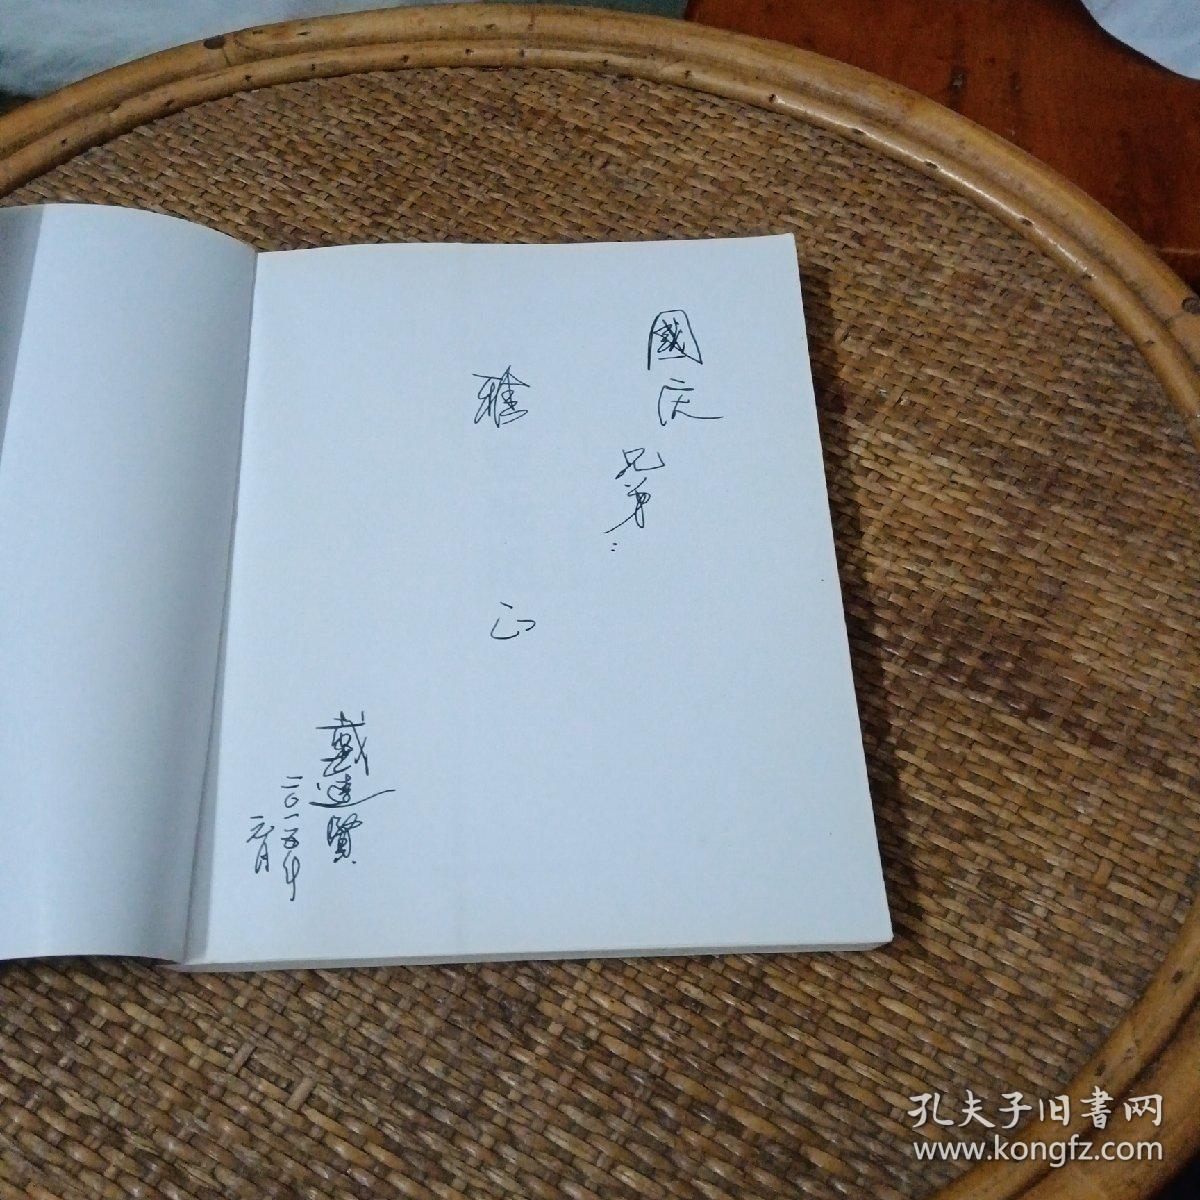 國庆
兄弟:
雅正
戴逢賢
二〇一五年
元月
孔夫子旧書网
www.kongfz.com